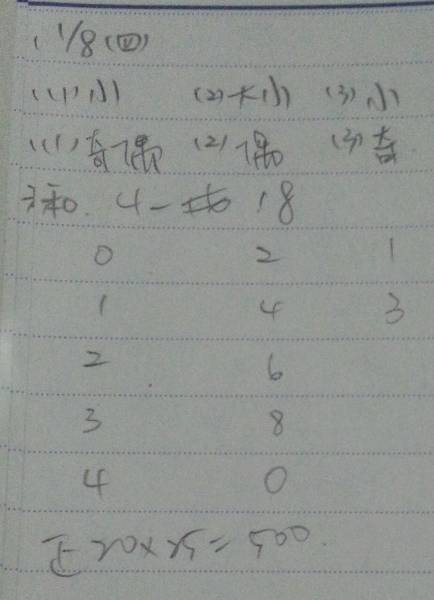 1/8(四)
(1)小 (2)大小 (3)小
(1)奇偶 (2)偶 (3)奇
和 4— 18
0 2 1
1 4 3
2 6
3 8
4 0
正20×25=500